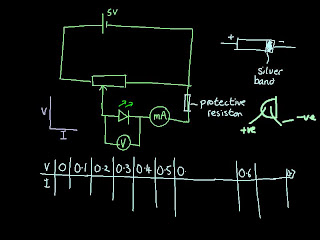 5V
+ -
silver
band
protective
resistor
mA
V
V
I
+ve
-ve
V 0 0.1 0.2 0.3 0.4 0.5 0. 0.6 0.7
I